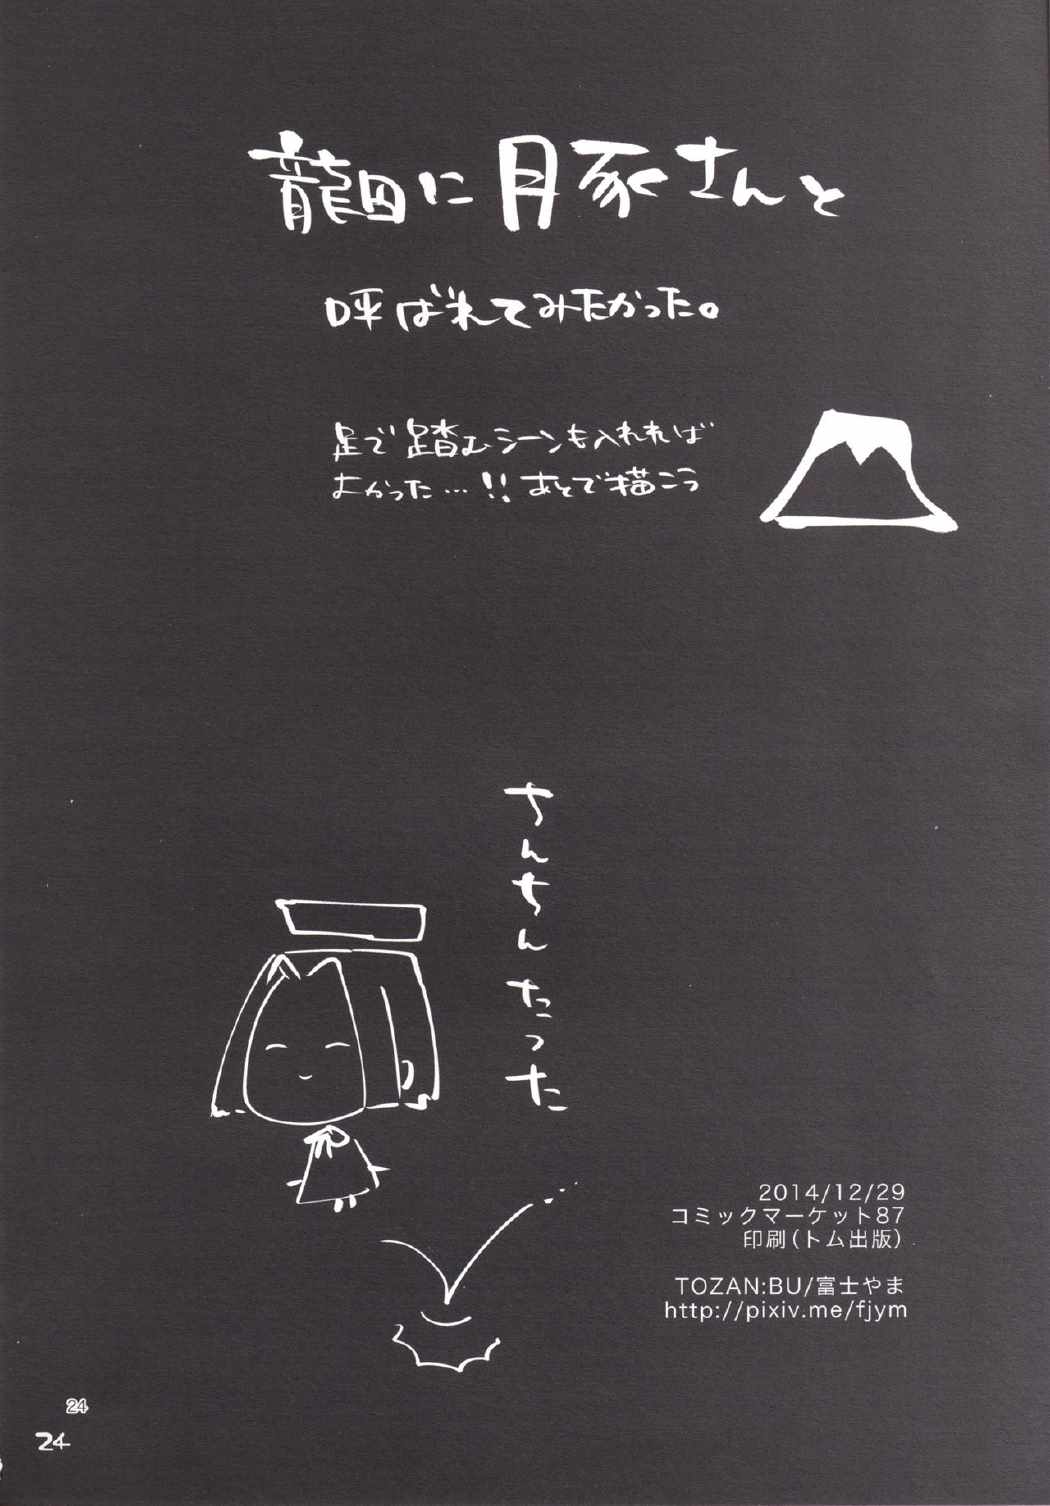 龍田に豚さんと
呼ばれてみたかった。
足で踏むシーンも入れれば
よかった…!! あとで描こう
さんちんたった
2014/12/29
コミックマーケット87
印刷(トム出版)
TOZAN:BU/富士やま
http://pixiv.me/fjym
24
24